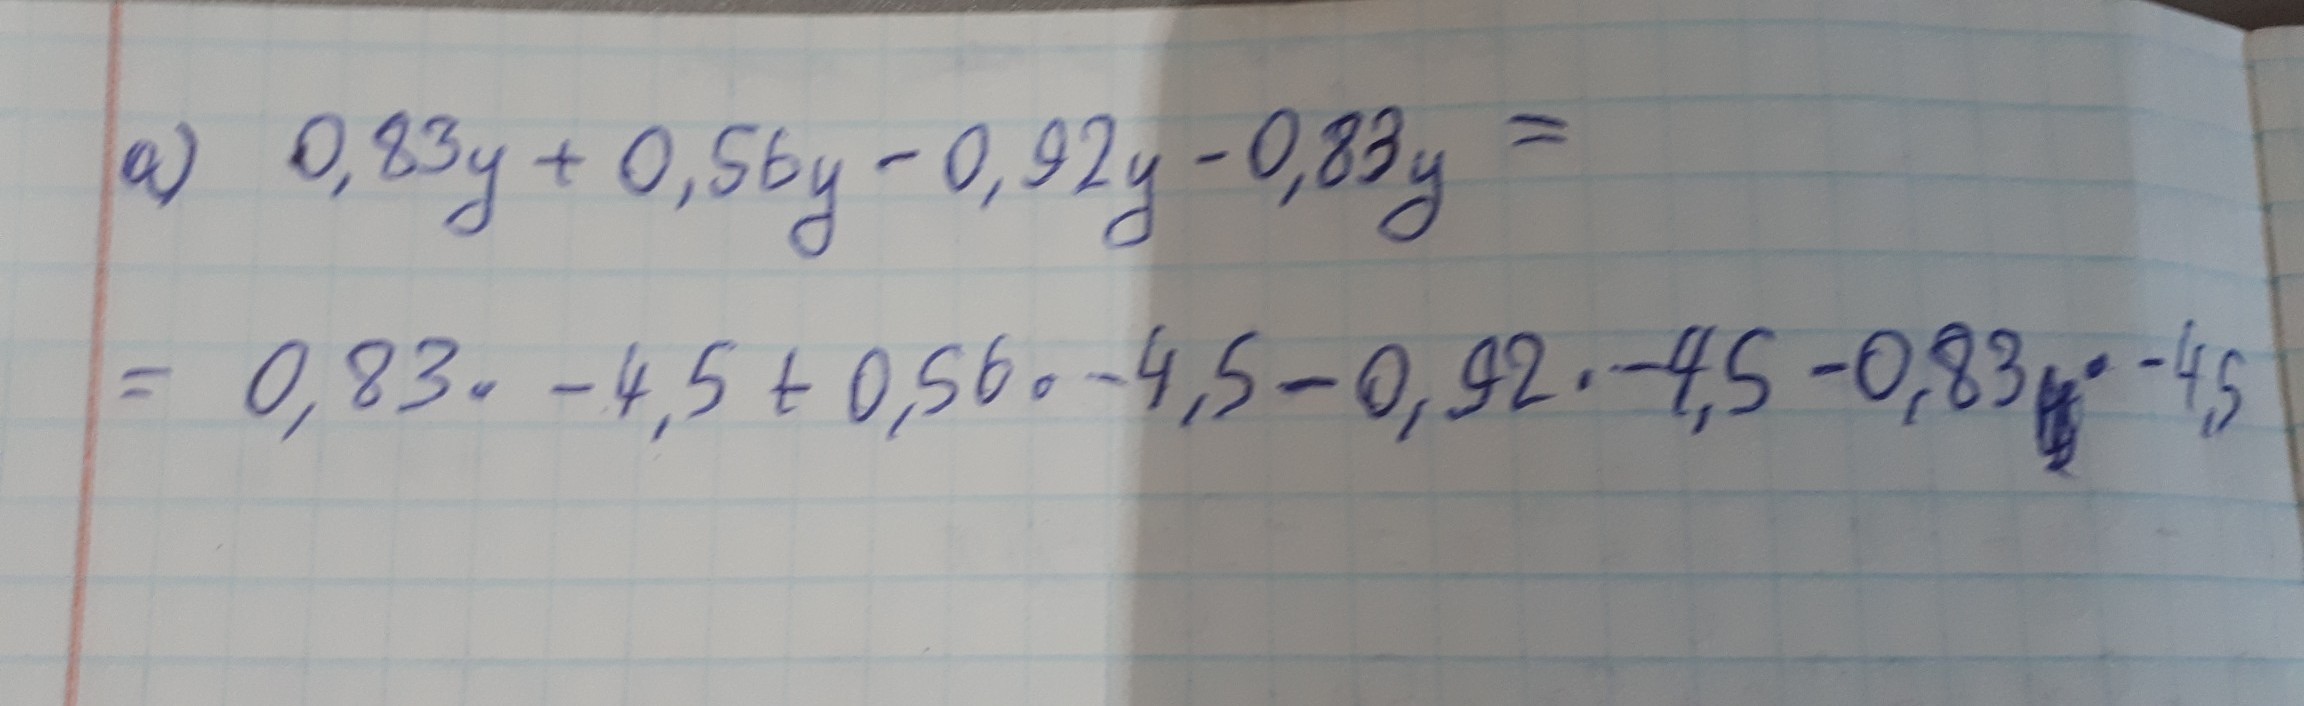 а) 0,83y + 0,56y - 0,92y - 0,83y =
= 0,83 · -4,5 + 0,56 · -4,5 - 0,92 · -4,5 - 0,83 · -4,5